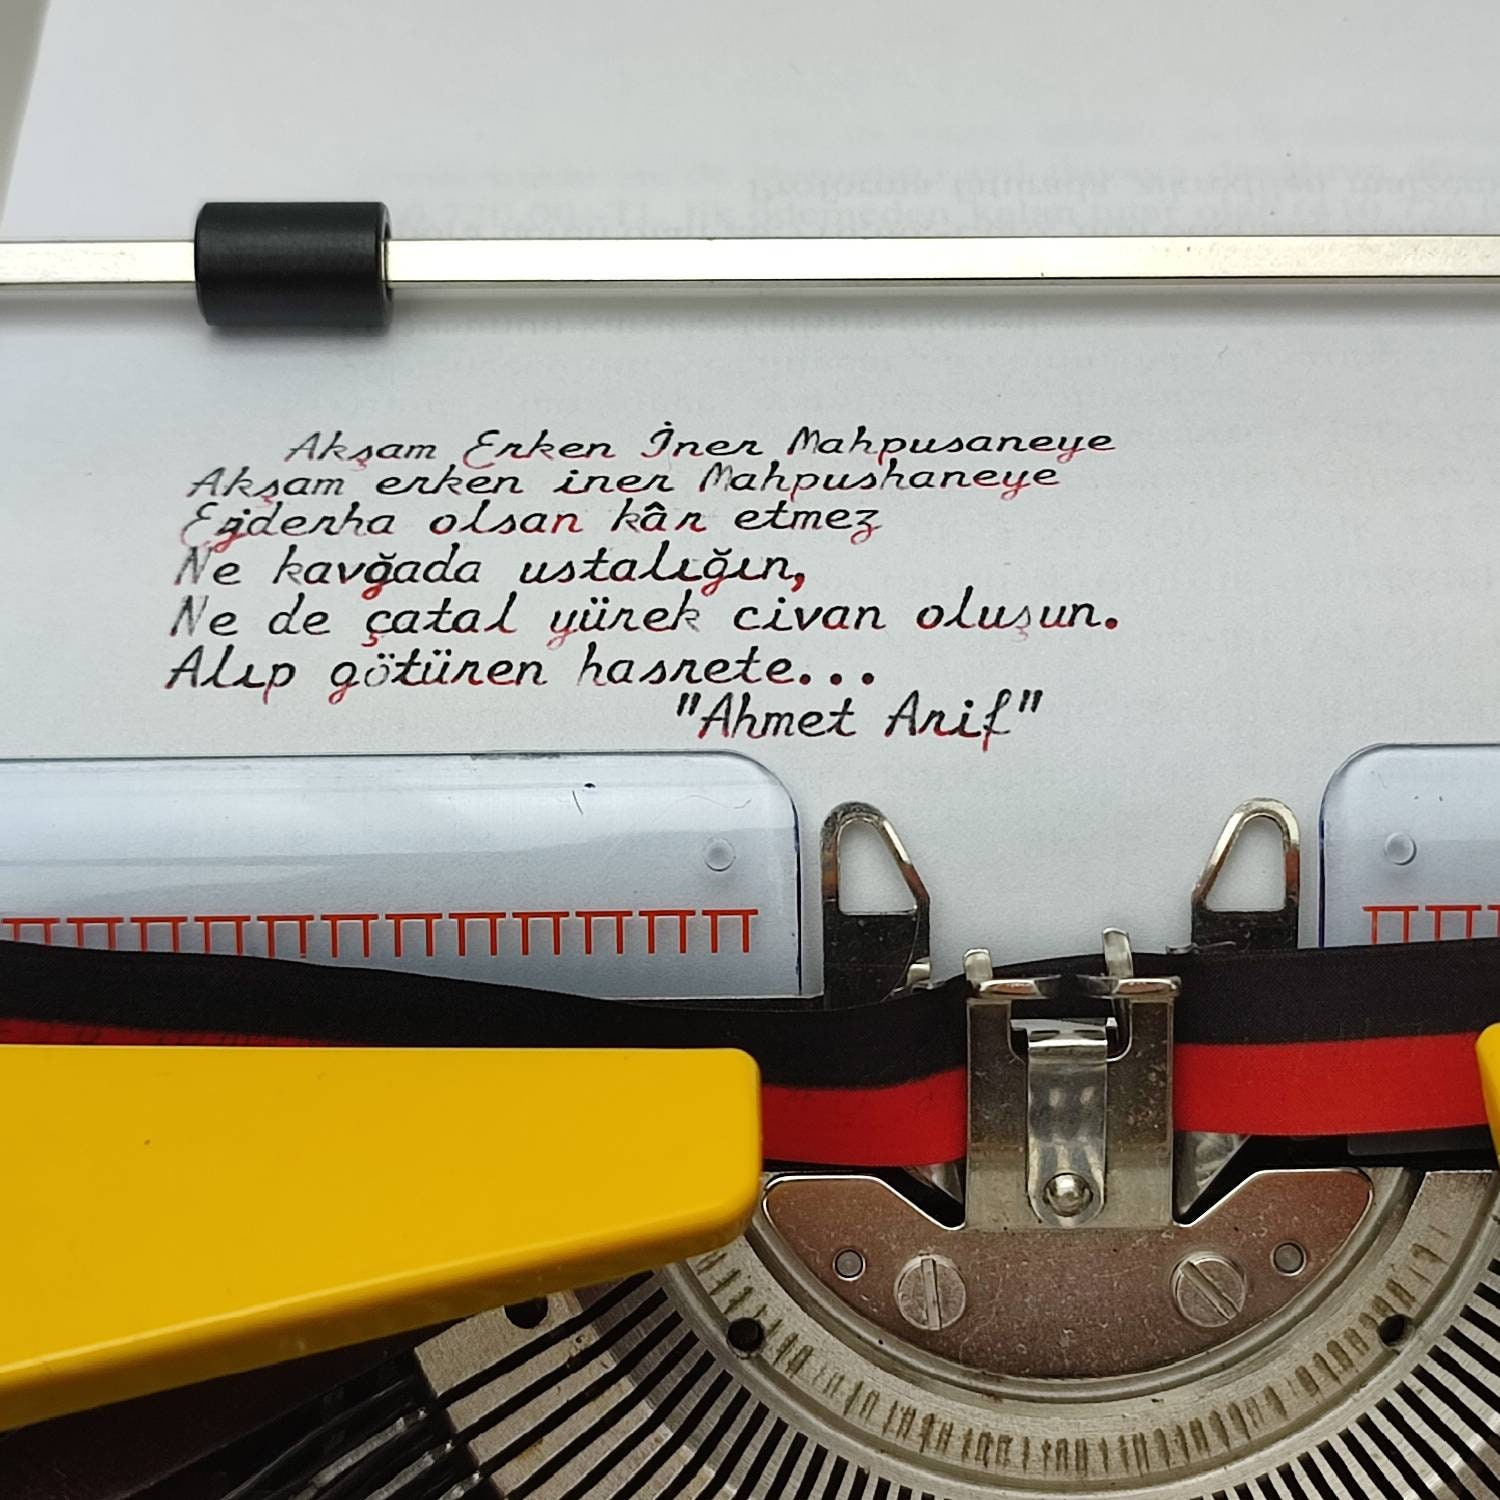 Akşam Erken İner Mahpusaneye
Akşam erken iner Mahpushaneye
Ejderha olsan kâr etmez
Ne kavğada ustalığın,
Ne de çatal yürek civan oluşun.
Alıp götüren hasrete...
"Ahmet Arif"